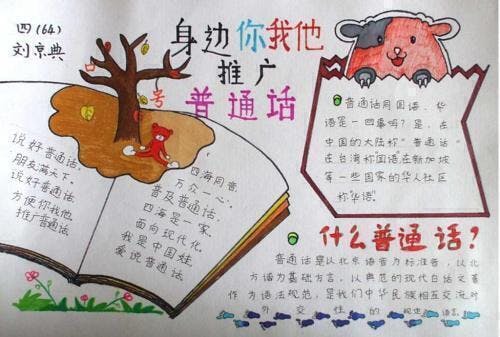 四(64)
刘京典
身边你我他
推广
普通话
号
说好普通话,
朋友满天下,
说好普通话
方便你我他
推广普通话
四海同音
万众一心,
普及普通话,
四海是一家,
面向现代化,
我是中国娃
爱说普通话
普通话同国语、华
语是一回事吗?是,在
中国的大陆称"普通话"
在台湾称国语在新加坡
等一些国家的华人社区
称"华语"
什么普通话?
普通话是以北京语音为标准音,以北
方话为基础方言,以典范的现代白话文著
作为语法规范,是我们中华民族相互交流对
外交往的规定语言